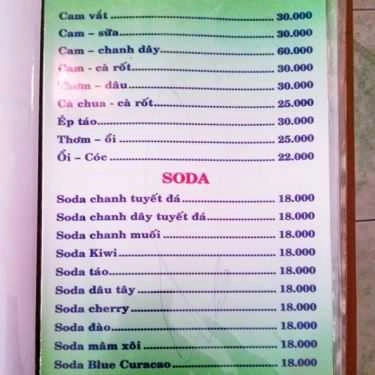 Cam vắt 30.000
Cam – sữa 30.000
Cam – chanh dây 60.000
Cam - cà rốt 30.000
Thơm – dâu 30.000
Cà chua - cà rốt 25.000
Ép táo 30.000
Thơm – ổi 25.000
Ổi – Cóc 22.000
SODA
Soda chanh tuyết đá 18.000
Soda chanh dây tuyết đá 18.000
Soda chanh muối 18.000
Soda Kiwi 18.000
Soda táo 18.000
Soda dâu tây 18.000
Soda cherry 18.000
Soda đào 18.000
Soda mâm xôi 18.000
Soda Blue Curacao 18.000